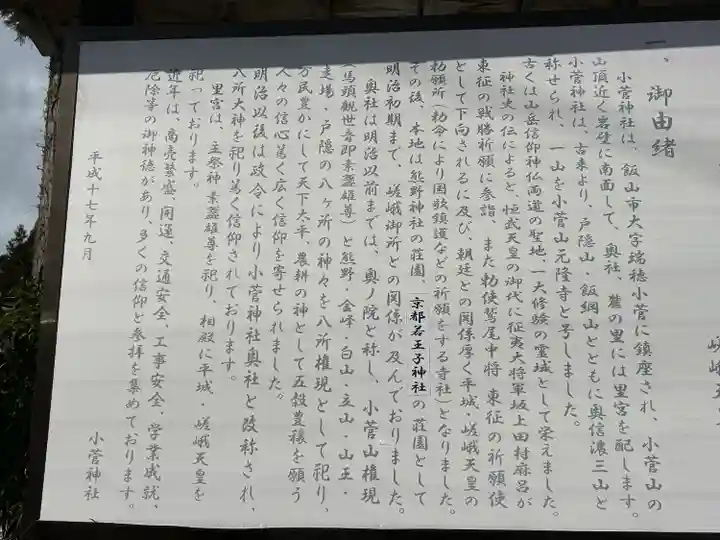 一、御由緒
小菅神社は、飯山市大字瑞穂小菅に鎮座され、小菅山の
山頂近く岩壁に南面して、奥社、麓の里には里宮を配します。
小菅神社は、古来より、戸隠山・飯綱山とともに奥信濃三山と
称せられ、一山を小菅山元隆寺と号しました。
古くは山岳信仰神仏両道の聖地、一大修験の霊域として栄えました。
神社史の伝によると、恒武天皇の御代に征夷大将軍坂上田村麻呂が
東征の戦勝祈願に参詣、また勅使鷲尾中将 東征の祈願使
として下向されるに及び、朝廷との関係厚く平城・嵯峨天皇の
勅願所(勅令により国家鎮護などの祈願をする寺社)となりました。
その後、本地は熊野神社の荘園、京都若王子神社の荘園として
明治初期まで、嵯峨御所との関係が及んでおりました。
奥社は明治以前までは、奥ノ院と称し、小菅山権現
(馬頭観世音即素盞雄尊)と熊野・金峰・白山・立山・山王・
走場・戸隠の八ヶ所の神々を八所権現として祀り、
万民豊かにして天下太平、農耕の神として五穀豊穣を願う
人々の信心篤く広く信仰を寄せられました。
明治以後は政令により小菅神社奥社と改称され、
八所大神を祀り篤く信仰されております。
里宮は、主祭神素盞雄尊を祀り、相殿に平城・嵯峨天皇を
祀っております。
近年は、商売繁盛、開運、交通安全、工事安全、学業成就、
厄除等の御神徳があり、多くの信仰と参拝を集めております。
平成十七年九月
小菅神社